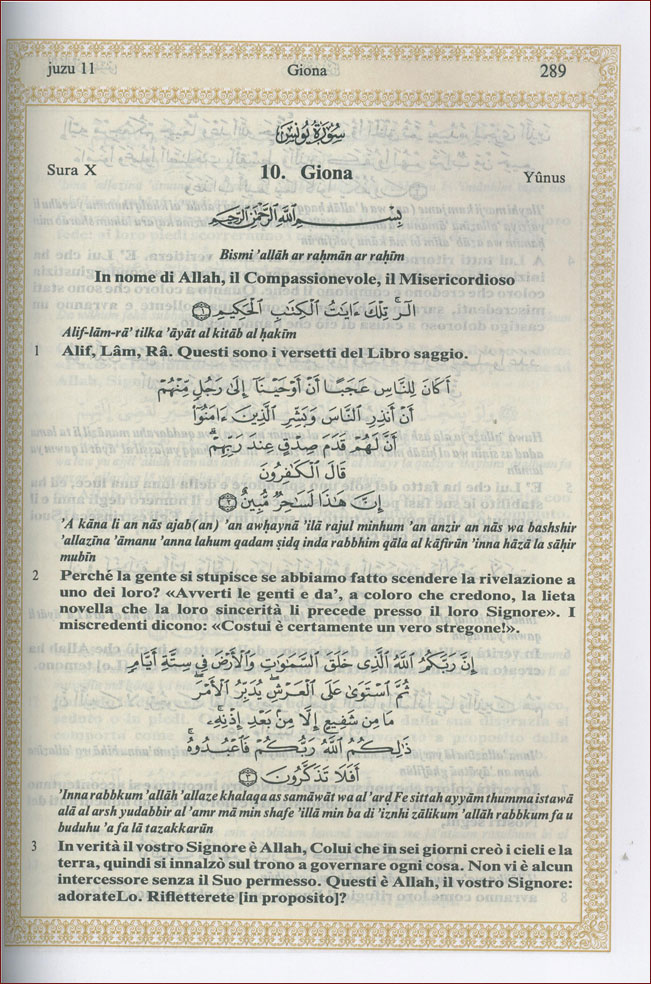 juzu 11 Giona 289
سُورَةُ يُونُسَ
Sura X 10. Giona Yûnus
بِسْمِ ٱللَّهِ ٱلرَّحْمَٰنِ ٱلرَّحِيمِ
Bismi ’allāh ar raḥmān ar raḥīm
In nome di Allah, il Compassionevole, il Misericordioso
الٓر ۚ تِلْكَ ءَايَٰتُ ٱلْكِتَٰبِ ٱلْحَكِيمِ ١
Alif-lām-rā’ tilka ’āyāt al kitāb al ḥakīm
1 Alif, Lâm, Râ. Questi sono i versetti del Libro saggio.
أَكَانَ لِلنَّاسِ عَجَبًا أَنْ أَوْحَيْنَآ إِلَىٰ رَجُلٍ مِّنْهُمْ
أَنْ أَنذِرِ ٱلنَّاسَ وَبَشِّرِ ٱلَّذِينَ ءَامَنُوٓا۟
أَنَّ لَهُمْ قَدَمَ صِدْقٍ عِندَ رَبِّهِمْ ۗ
قَالَ ٱلْكَٰفِرُونَ
إِنَّ هَٰذَا لَسَٰحِرٌ مُّبِينٌ ٢
’A kāna li an nās ajab(an) ’an awḥaynā ’ilā rajul minhum ’an anzir an nās wa bashshir
’allazīna ’āmanu ’anna lahum qadam ṣidq inda rabbhim qāla al kāfirūn ’inna hāzā la sāḥir
mubīn
2 Perché la gente si stupisce se abbiamo fatto scendere la rivelazione a
uno dei loro? «Avverti le genti e da’, a coloro che credono, la lieta
novella che la loro sincerità li precede presso il loro Signore». I
miscredenti dicono: «Costui è certamente un vero stregone!».
إِنَّ رَبَّكُمُ ٱللَّهُ ٱلَّذِى خَلَقَ ٱلسَّمَٰوَٰتِ وَٱلْأَرْضَ فِى سِتَّةِ أَيَّامٍ
ثُمَّ ٱسْتَوَىٰ عَلَى ٱلْعَرْشِ ۖ يُدَبِّرُ ٱلْأَمْرَ ۖ
مَا مِن شَفِيعٍ إِلَّا مِنۢ بَعْدِ إِذْنِهِۦ ۚ
ذَٰلِكُمُ ٱللَّهُ رَبُّكُمْ فَٱعْبُدُوهُ ۚ
أَفَلَا تَذَكَّرُونَ ٣
’Inna rabbkum ’allāh ’allaze khalaqa as samāwāt wa al ’arḍ Fe sittah ayyām thumma istawā
alā al arsh yudabbir al ’amr mā min shafe ’illā min ba di ’iznhi zālikum ’allāh rabbkum fa u
buduhu ’a fa lā tazakkarūn
3 In verità il vostro Signore è Allah, Colui che in sei giorni creò i cieli e la
terra, quindi si innalzò sul trono a governare ogni cosa. Non vi è alcun
intercessore senza il Suo permesso. Questi è Allah, il vostro Signore:
adorateLo. Rifletterete [in proposito]?